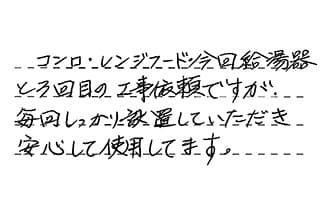 コンロ・レンジフード今回給湯器
と3回目の工事依頼ですが、
毎回しっかり設置していただき
安心して使用してます。